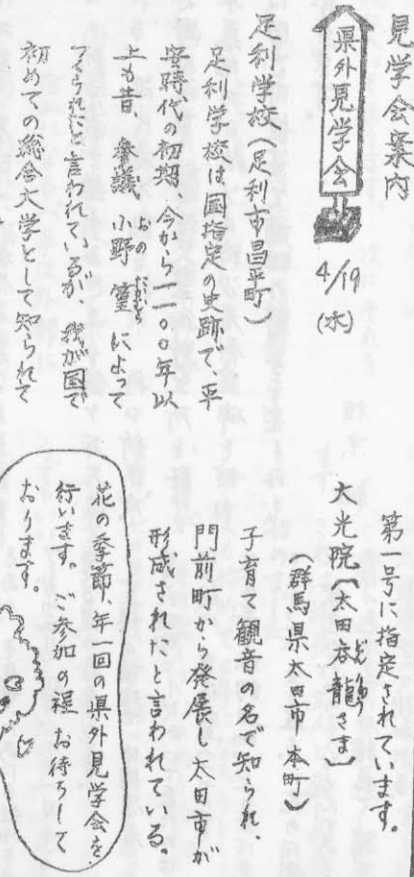 見学会案内
県外見学会
4/19
(水)
足利学校(足利市昌平町)
足利学校は国指定の史跡で、平
安時代の初期、今から一一〇〇年以
上も昔、参議 小野篁 によって
おの たかむら
つくられたと言われているが、我が国で
初めての総合大学として知られて
第一号に指定されています。
大光院(太田呑龍さま)
どんりゅう
(群馬県太田市本町)
子育て観音の名で知られ、
門前町から発展し太田市が
形成されたと言われている。
花の季節、年一回の県外見学会を
行います。ご参加の程 お待ちして
おります。